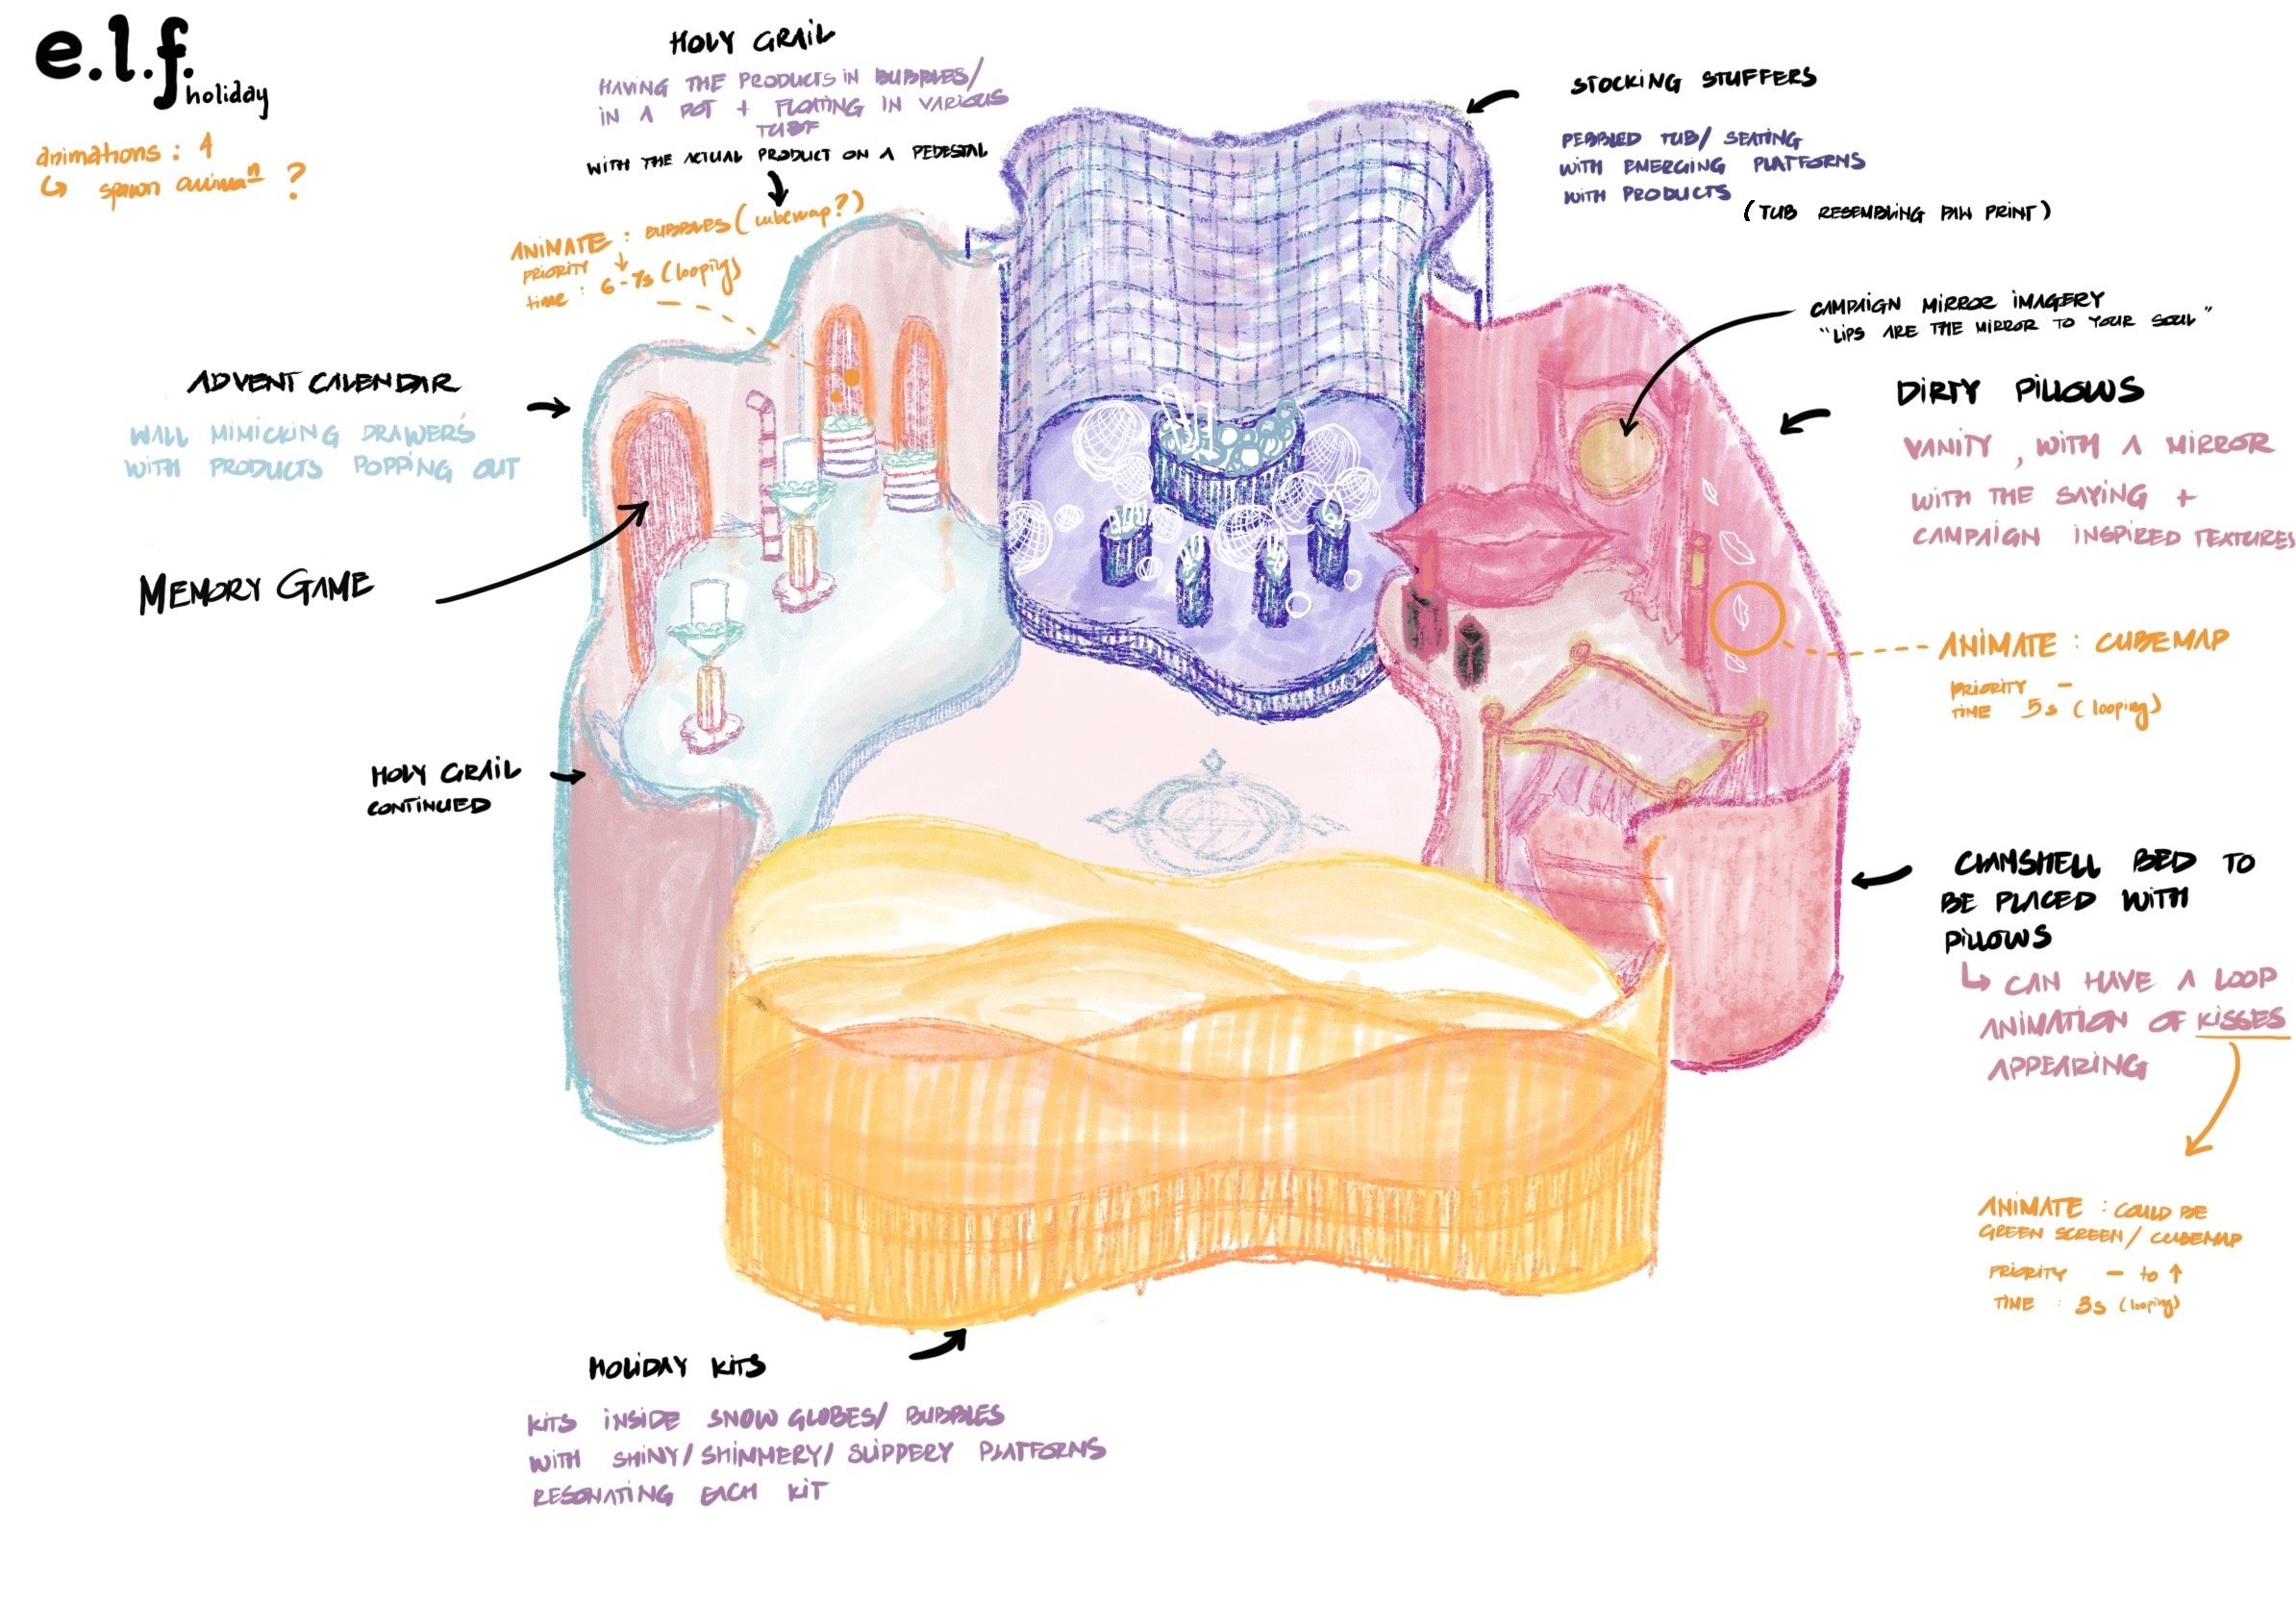 e.l.f.
holiday
animations : 4
↳ spawn animaⁿ ?
HOLY GRAIL
HAVING THE PRODUCTS IN BUBBLES/
IN A POT + FLOATING IN VARIOUS
WITH THE ACTUAL PRODUCT ON A PEDESTAL
ANIMATE : BUBBLES (cubemap?)
PRIORITY ↓
time : 6-7s (looping)
STOCKING STUFFERS
PEBBLED TUB/ SEATING
WITH EMERGING PLATFORMS
WITH PRODUCTS
(TUB RESEMBLING PAW PRINT)
CAMPAIGN MIRROR IMAGERY
"LIPS ARE THE MIRROR TO YOUR SOUL"
ADVENT CALENDAR
WALL MIMICKING DRAWERS
WITH PRODUCTS POPPING OUT
MEMORY GAME
DIRTY PILLOWS
VANITY, WITH A MIRROR
WITH THE SAYING +
CAMPAIGN INSPIRED TEXTURES
ANIMATE : CUBEMAP
PRIORITY –
TIME 5s (looping)
HOLY GRAIL
CONTINUED
CLAMSHELL BED TO
BE PLACED WITH
PILLOWS
↳ CAN HAVE A LOOP
ANIMATION OF KISSES
APPEARING
ANIMATE : COULD BE
GREEN SCREEN/ CUBEMAP
PRIORITY – to ↑
TIME : 3s (looping)
HOLIDAY KITS
KITS INSIDE SNOW GLOBES/ BUBBLES
WITH SHINY/SHIMMERY/ SLIPPERY PLATFORMS
RESONATING EACH KIT